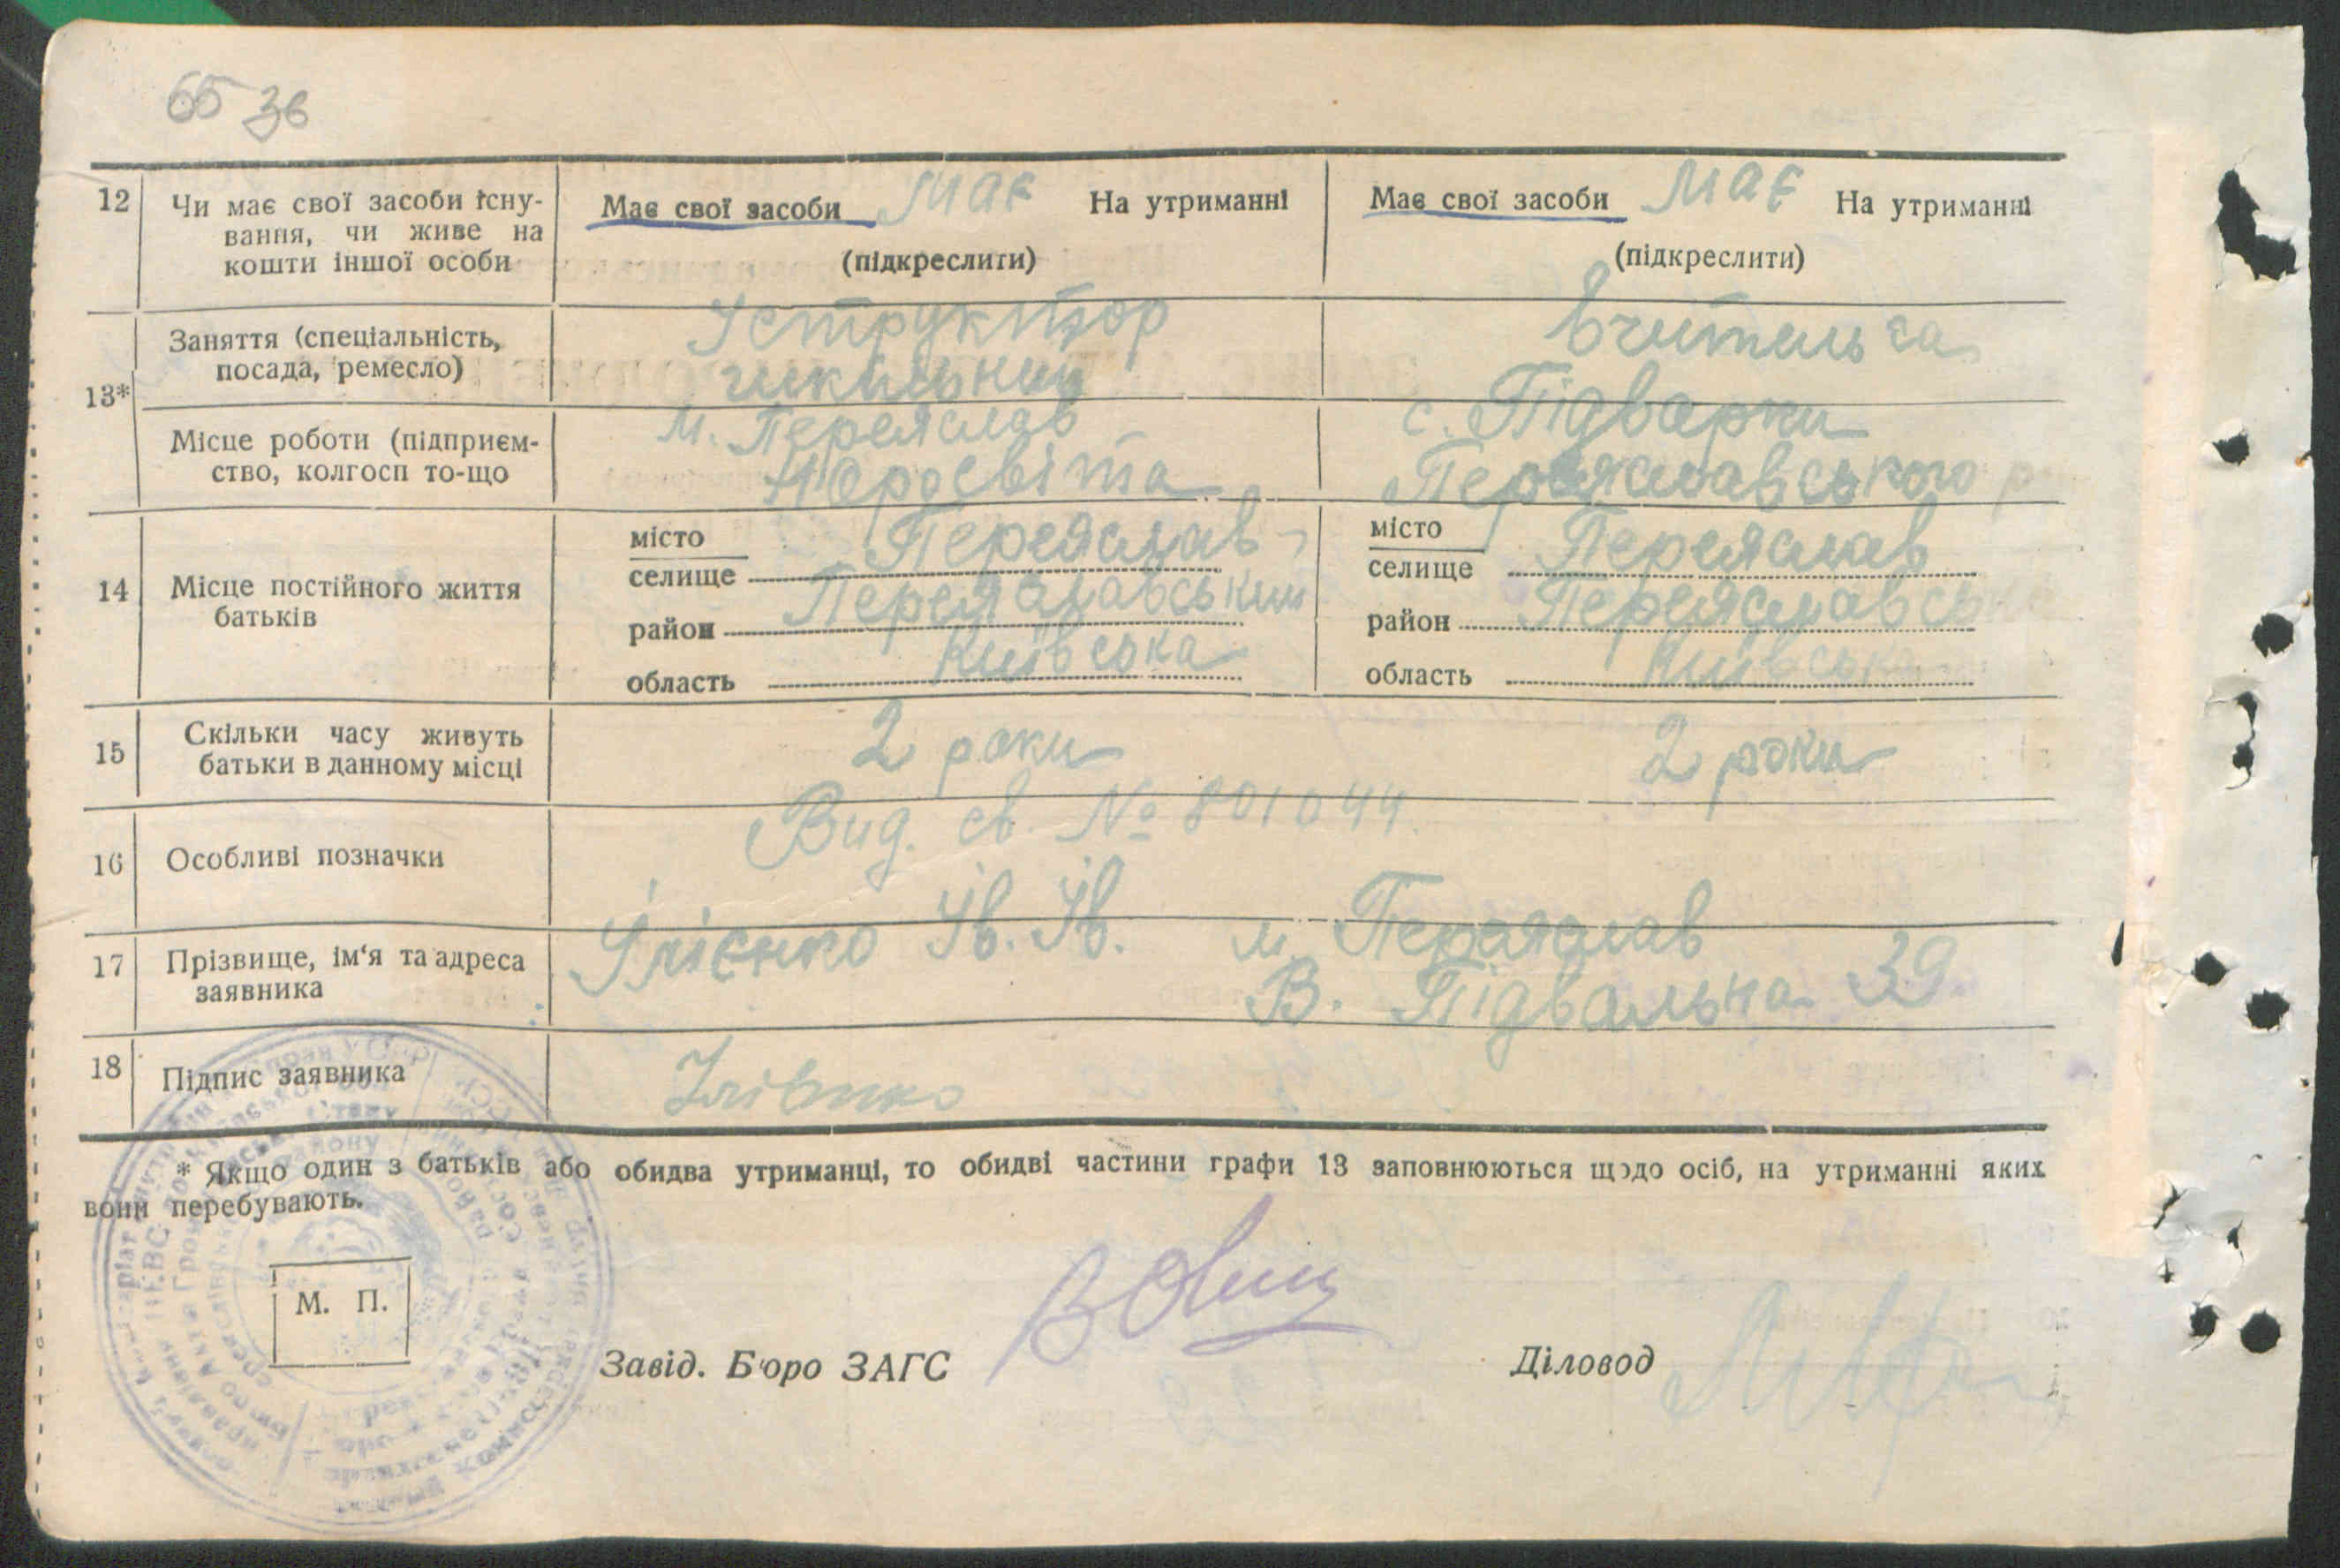 65 зв
12 Чи має свої засоби існу- Має свої засоби має На утриманні Має свої засоби має На утриманні
вання, чи живе на
кошти іншої особи (підкреслити) (підкреслити)
13* Заняття (спеціальність, Уструктор вчителька
посада, ремесло) шкільний
Місце роботи (підприєм- м. Переяслав с. Підварки
ство, колгосп то-що Наросвіта Переяславського р
14 Місце постійного життя батьків
місто Переяслав місто Переяслав
селище селище
район Переяславський район Переяславськ
область Київська область Київська
15 Скільки часу живуть 2 роки 2 роки
батьки в данному місці
16 Особливі позначки Вид. св. № 801044.
17 Прізвище, ім'я та адреса Ілієнко Ів. Ів. м. Переяслав
заявника В. Підвальна 39.
18 Підпис заявника Ілієнко
* Якщо один з батьків або обидва утриманці, то обидві частини графи 13 заповнюються щодо осіб, на утриманні яких
вони перебувають.
М. П.
Завід. Бюро ЗАГС Діловод